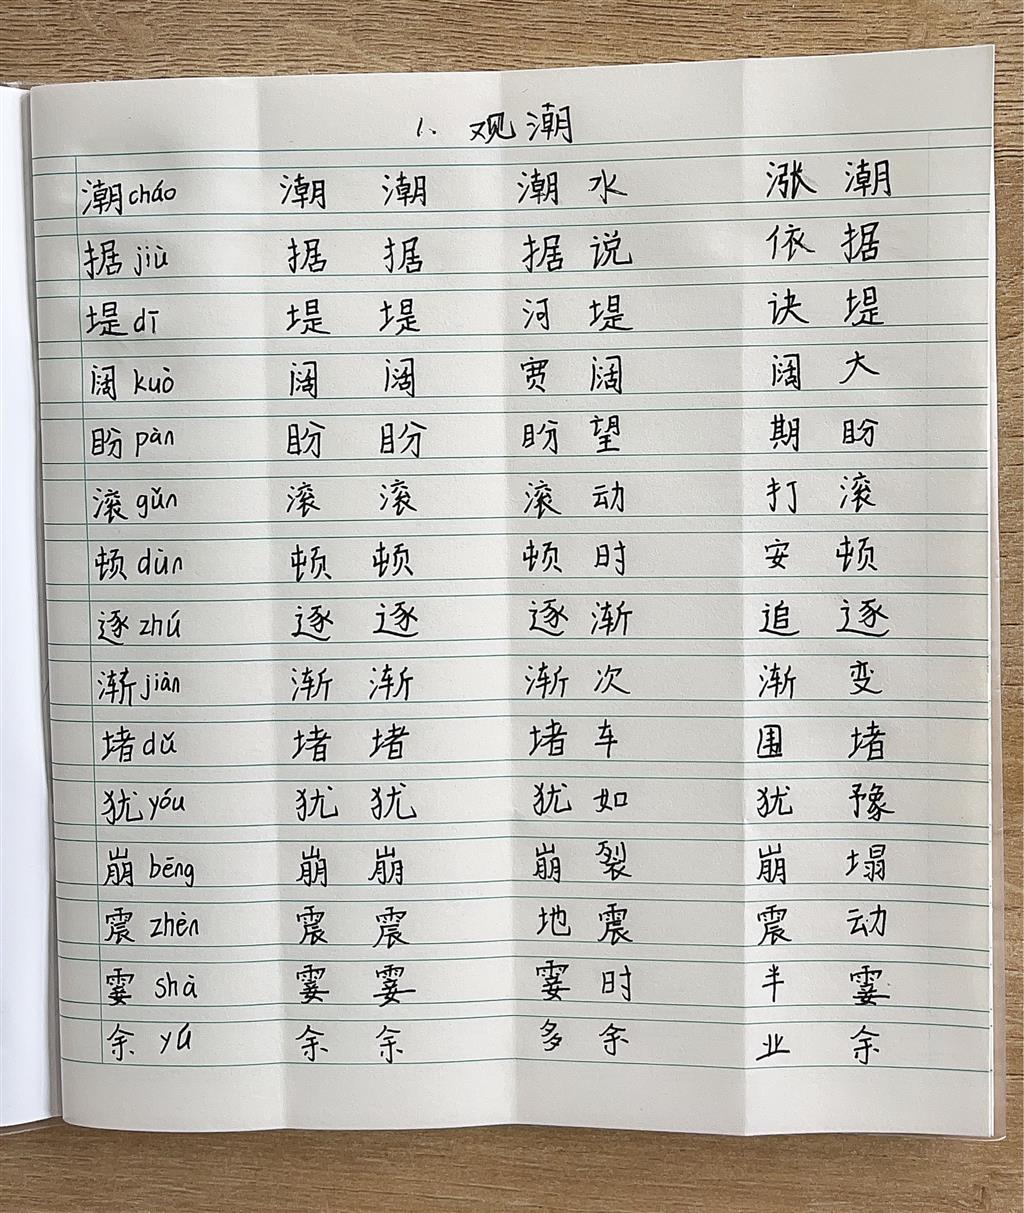 1、观潮
潮cháo 潮 潮 潮水 涨潮
据jiù 据 据 据说 依据
堤dī 堤 堤 河堤 诀堤
阔kuò 阔 阔 贾阔 阔大
盼pàn 盼 盼 盼望 期盼
滚gǔn 滚 滚 滚动 打滚
顿dùn 顿 顿 顿时 安顿
逐zhú 逐 逐 逐渐 追逐
渐jiàn 渐 渐 渐次 渐变
堵dǔ 堵 堵 堵车 围堵
犹yóu 犹 犹 犹如 犹豫
崩bēng 崩 崩 崩裂 崩塌
震zhèn 震 震 地震 震动
霎shà 霎 霎 霎时 半霎
余yú 余 余 多余 业余